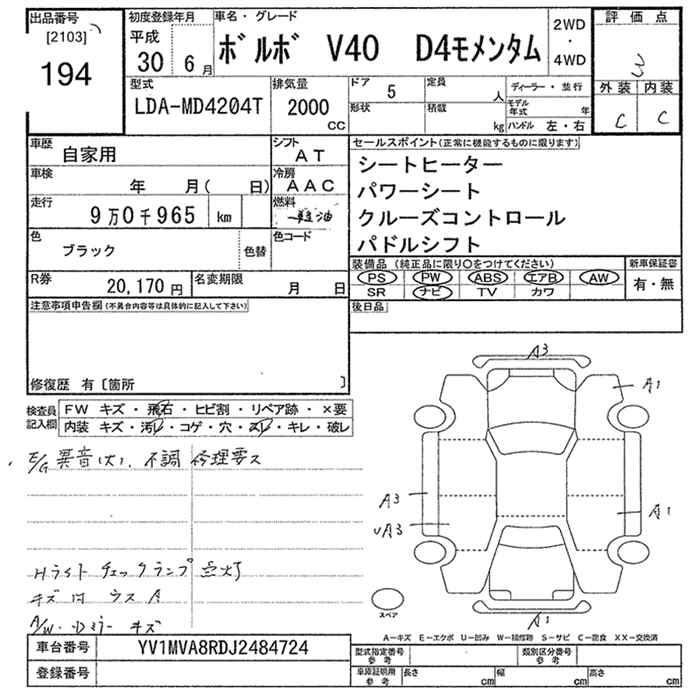 出品番号
[2103]
194
初度登録年月
平成
30 6月
車名・グレード
ボルボ V40 D4モメンタム
2WD
・
4WD
評価点
3
外装 内装
C C
型式
LDA-MD4204T
排気量
2000
CC
ドア 5
形状
定員 人
積載 kg
ディーラー・並行
モデル年式 年
ハンドル 左・右
車歴
自家用
シフト
AT
車検
年 月( 日)
冷房
AAC
走行
9万0千965 km
燃料
軽油
色
ブラック
色替
色コード
R券
20,170円
名変期限
月 日
セールスポイント(正常に機能するものに限ります)
シートヒーター
パワーシート
クルーズコントロール
パドルシフト
装備品(純正品に限り○をつけてください)
PS PW ABS エアB AW
SR ナビ TV カワ
新車保証書
有・無
後日品
注意事項申告欄(不具合内容等は具体的に記入して下さい)
修復歴 有[箇所 ]
検査員
記入欄
FW キズ・飛石・ヒビ割・リペア跡・×要
内装 キズ・汚レ・コゲ・穴・スレ・キレ・破レ
E/G 異音(大)、不調 修理要ス
Hライト チェックランプ 点灯
キズ凹 ウス A
A/W・Dミラー キズ
A3
A1
A3
UA3
A1
A1
スペア
A-キズ E-エクボ U-凹み W-補修跡 S-サビ C-腐食 XX-交換済
車台番号
YV1MVA8RDJ2484724
登録番号
型式指定番号
参考
類別区分番号
参考
車庫証明用
参考
長さ cm
幅 cm
高さ cm